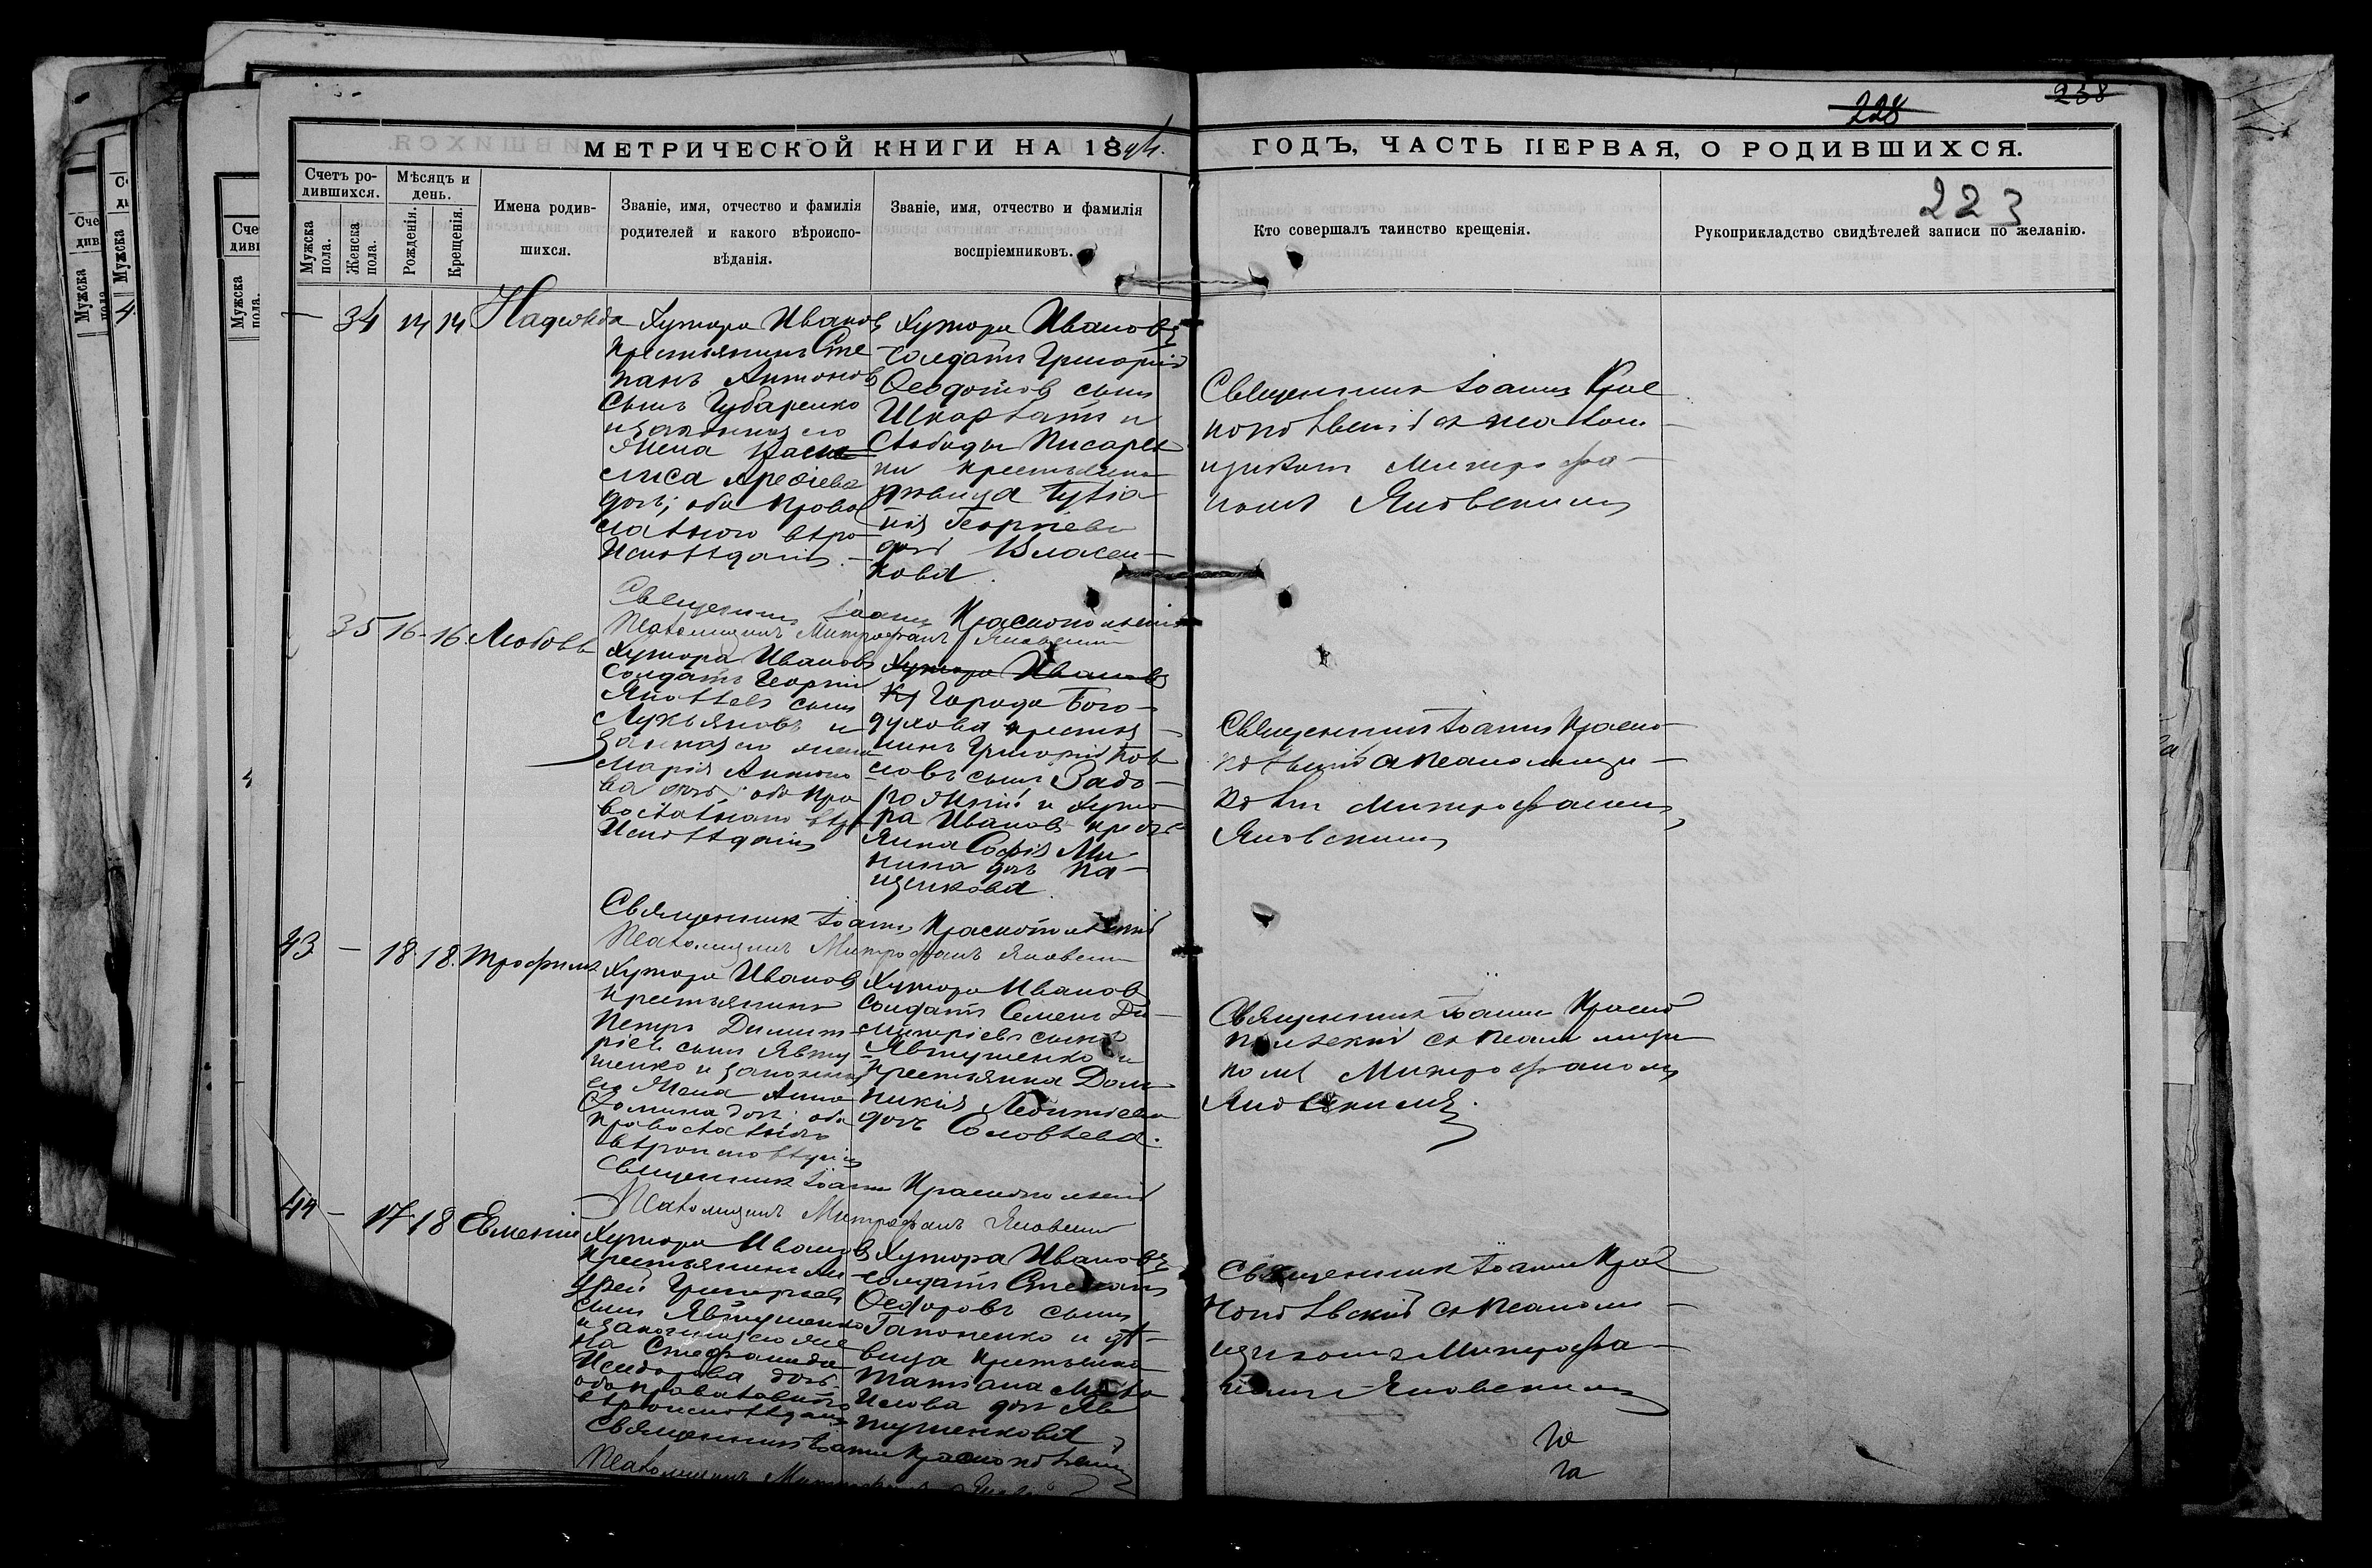 228
238
МЕТРИЧЕСКОЙ КНИГИ НА 1894.
ГОДЪ, ЧАСТЬ ПЕРВАЯ, О РОДИВШИХСЯ.
223
Счетъ ро-
дившихся.
Мужска пола.
Женска пола.
Мѣсяцъ и
день.
Рожденія.
Крещенія.
Имена родив-
шихся.
Званіе, имя, отчество и фамилія
родителей и какого вѣроиспо-
вѣданія.
Званіе, имя, отчество и фамилія
воспріемниковъ.
Кто совершалъ таинство крещенія.
Рукоприкладство свидѣтелей записи по желанію.
— 34 14 14 Надежда
Хутора Иванов
крестьянинъ Сте
панъ Антоновъ
сынъ Губаренко
и законная его
жена Васи
лиса
доч; оба право
славнаго вѣро
исповѣданія.
Хутора Ивановъ
солдатъ Григорій
Ѳеодотовъ сынъ
и
слободы Писарев
ки крестьянка
дѣвица
Георгіева
доч Власен-
кова.
Священникъ Іоаннъ Крас
нопольскій съ псалом-
щикомъ Митрофа-
номъ Яновскимъ
Священникъ Іоаннъ Краснопольскій
Псаломщикъ Митрофанъ Яновскій
35 16 16 Любовь
Хутора Ивановъ
солдатъ Георгій
Яковлевъ сынъ
Лукьяновъ и
законная его жена
Марія Антоно
ва доч, оба пра
вославнаго вѣро
исповѣданія
Хутора Ивановъ
Кр Города Бого-
духова крестья-
нинъ Григорій Пав
ловъ сынъ Задо-
рожный и хуто
ра Ивановъ кресть
янка Софія Ми-
нина доч Па-
щенкова
Священникъ Іоаннъ Красно-
польскій съ псаломщи-
комъ Митрофаномъ
Яновскимъ
Священникъ Іоаннъ Краснопольскій
Псаломщикъ Митрофанъ Яновскій
43 — 18 18 Трофимъ
Хутора Ивановъ
крестьянинъ
Петръ Димит-
ріевъ сынъ Явту
шенко и законная
его жена Анна
Фомина доч; оба
православнаго
вѣроисповѣданія
Хутора Ивановъ
солдатъ Семенъ Ди-
митріевъ сынъ
Явтушенко и
крестьянка Дом-
никія Леонтіева
доч Соловьева.
Священникъ Іоаннъ Красно
польскій съ псаломщи
комъ Митрофаномъ
Яновскимъ.
Священникъ Іоаннъ Краснопольскій
Псаломщикъ Митрофанъ Яновскій
44 — 17 18 Евменій
Хутора Ивановъ
крестьянинъ Ан
дрей Григорьевъ
сынъ Явтушенко
и законная его же
на Стефанида
Исидорова доч
оба православнаго
вѣроисповѣданія
Хутора Ивановъ
солдатъ Степанъ
Ѳеодоровъ сынъ
Гапоненко и дѣ-
вица крестьянка
Татіана
доч Яв
тушенкова
Священникъ Іоаннъ Крас
нопольскій съ псалом-
щикомъ Митрофа-
номъ Яновскимъ
Священникъ Іоаннъ Краснопольскій
Псаломщикъ Митрофанъ